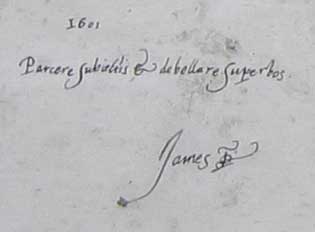 1601
Parcere subiectis & debellare superbos.
James R